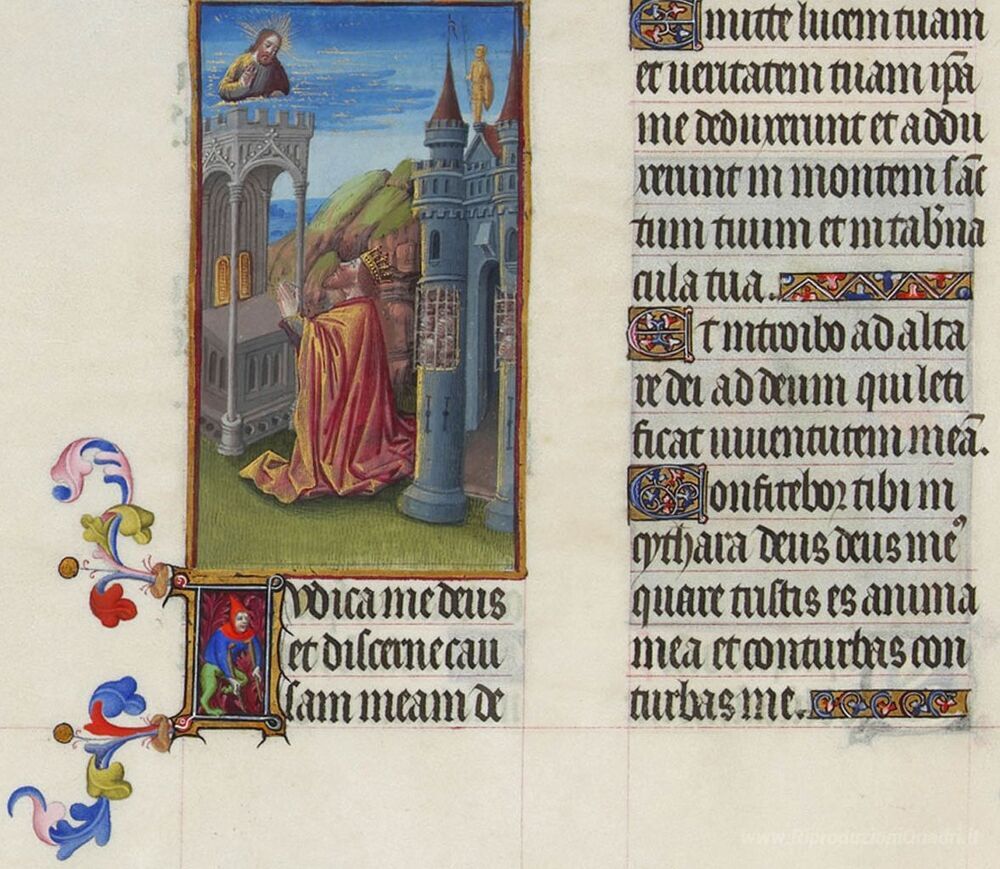 Iudica me deus
et discerne cau
sam meam de
Emitte lucem tuam
et ueritatem tuam ip̄a
me deduxerunt et addu
xerunt in montem sāc
tum tuum et in tab̄na
cula tua.
Et introibo ad alta
re dei ad deum qui leti
ficat iuuentutem meā.
Confitebor tibi in
cythara deus deus me᷒
quare tristis es anima
mea et conturbas con
turbas me.
www.RiproduzioniQuadri.it